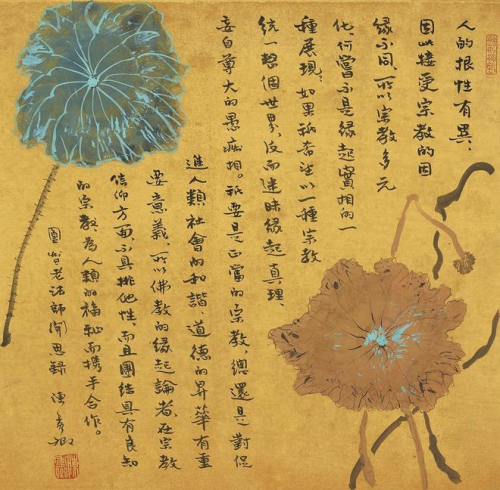 人的根性有異,
因此接受宗教的因
緣不同,所以宗教多元
化,何嘗不是緣起實相的一
種展現,如果祇希望以一種宗教
統一整個世界,反而迷昧緣起真理,
妄自尊大的愚痴相。祇要是正當的宗教,總還是對促
進人類社會的和諧 道德的昇華有重
要意義,所以佛教的緣起論者在宗教
信仰方面不具排他性,而且團結具有良知
的宗教為人類的福祉而攜手合作。
圓智老法師聞思錄 陳秀卿